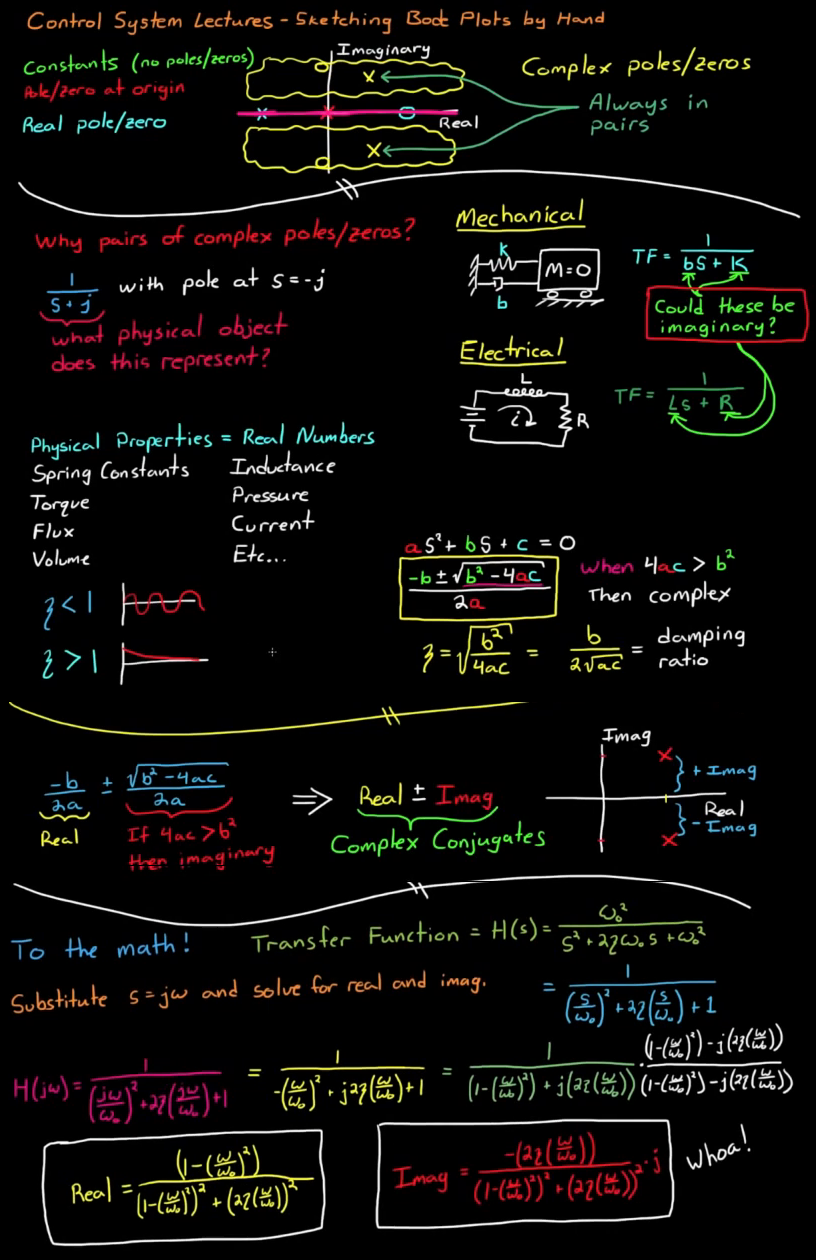 Control System Lectures - Sketching Bode Plots by Hand
Constants (no poles/zeros)
Pole/zero at origin
Real pole/zero
Imaginary
Real
Complex poles/zeros
Always in
pairs
Why pairs of complex poles/zeros?
1/(s+j) with pole at s=-j
what physical object
does this represent?
Mechanical
K
M=0
b
TF = 1/(bs + K)
Could these be
imaginary?
Electrical
L
i
R
TF = 1/(Ls + R)
Physical Properties = Real Numbers
Spring Constants
Torque
Flux
Volume
Inductance
Pressure
Current
Etc...
ζ < 1
ζ > 1
as² + bs + c = 0
(-b ± √(b² - 4ac))/(2a)
when 4ac > b²
Then complex
ζ = √(b²/4ac) = b/(2√ac) = damping
ratio
-b/2a ± √(b² - 4ac)/2a ⟹ Real ± Imag
Real
If 4ac > b²
then imaginary
Complex Conjugates
Imag
+ Imag
Real
- Imag
To the math!
Transfer Function = H(s) = ω₀²/(s² + 2ζω₀s + ω₀²)
Substitute s=jω and solve for real and imag.
= 1/((s/ω₀)² + 2ζ(s/ω₀) + 1)
H(jω) = 1/((jω/ω₀)² + 2ζ(jω/ω₀) + 1) = 1/(-(ω/ω₀)² + j2ζ(ω/ω₀) + 1) = 1/((1-(ω/ω₀)²) + j(2ζ(ω/ω₀))) · ((1-(ω/ω₀)²) - j(2ζ(ω/ω₀)))/((1-(ω/ω₀)²) - j(2ζ(ω/ω₀)))
Real = (1-(ω/ω₀)²)/((1-(ω/ω₀)²)² + (2ζ(ω/ω₀))²)
Imag = -(2ζ(ω/ω₀))/((1-(ω/ω₀)²)² + (2ζ(ω/ω₀))²) · j
whoa!